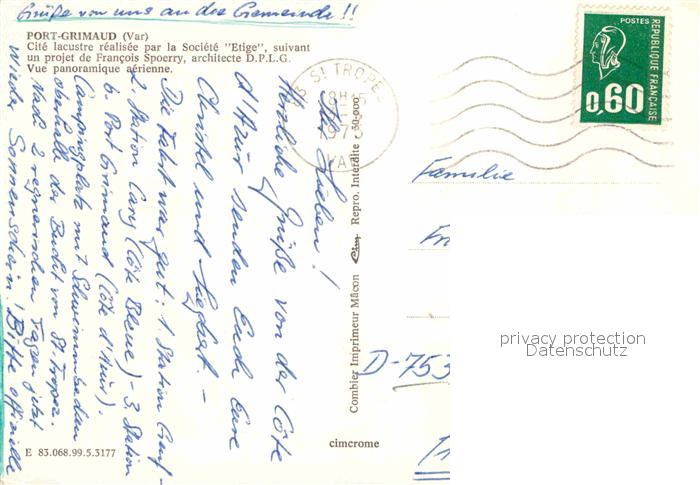 Grüße von uns an die Gemeinde!!
PORT-GRIMAUD (Var)
Cité lacustre réalisée par la Société "Etige", suivant
un projet de François Spoerry, architecte D.P.L.G.
Vue panoramique aérienne.
Ihr Lieben!
Herzliche Grüße von der Côte
d'Azur senden Euch Eure
Christel und Siegbert -
Die Fahrt war gut: 1. Station Genf -
2. Station Cary (Côte Bleue) - 3. Station
b. Port Grimaud (Côte d'Azur).
Campingplatz mit Schwimmbad an
oberhalb der Bucht von St. Tropez.
Nach 2 regnerischen Tagen jetzt
wieder Sonnenschein! Bitte offizielle
E 83.068.99.5.3177
Combier Imprimeur Mâcon cim Repro. Interdite
cimcrome
83 ST TROPEZ
18H
VAR
POSTES
REPUBLIQUE FRANÇAISE
0,60
Familie
D-753
privacy protection
Datenschutz